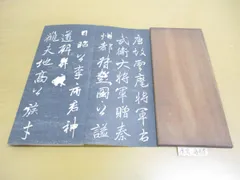 唐故雲麾將軍右
武衛大將軍贈秦
州都督彭國公謚
曰昭公李府君神
道碑并序
觀夫地高公族才